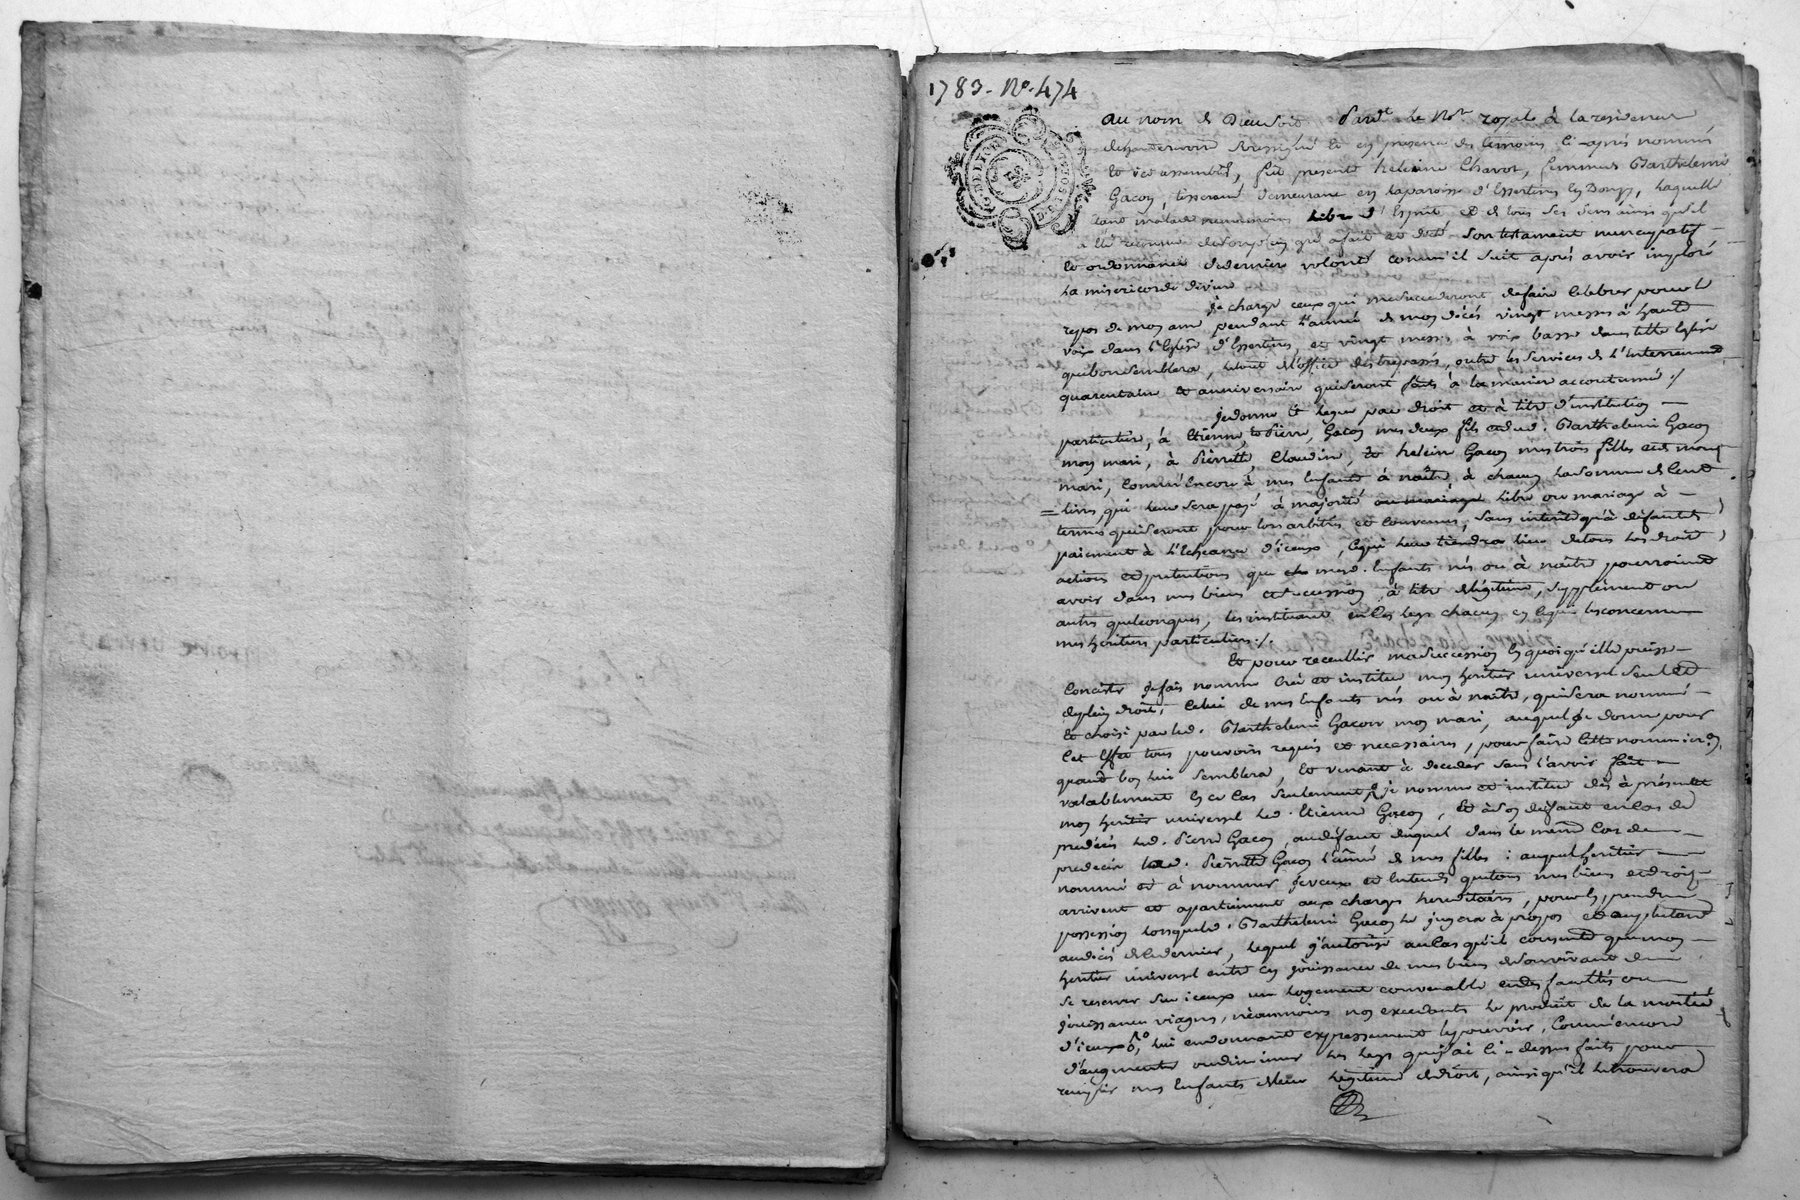 1783. No. 474
GENERALITE DE LYON
au nom de Dieu soit. Pardt. le Nore. royal à la residence
soussigné et en presence des temoins ci-après nommés
et icé assemblés, fut presente heleine Charot, femme de Barthelemi
Gacon, tisserand demeurant en la paroisse d'Essertines en Donzy, laquelle
étant malade neanmoins libre d'Esprit et de tous ses sens ainsi qu'il
a été reconnu de son plein gré a fait et dicté son testament nuncupatif
et ordonnance de derniere volonté comm'il suit après avoir imploré
la misericorde divine
je charge ceux qui me succederont de faire celebrer pour le
repos de mon ame pendant l'année de mon décés vingt messes à haute
voix dans l'Eglise d'Essertines et vingt messes à voix basse dans telle Eglise
que bon semblera, le tout de l'office des trepassés, outre les services de l'Enterrement
quarantaine et anniversaire qui seront faits à la maniere accoutumée ./
je donne et legue par droit et à titre d'institution
particuliere, à Etienne, & Pierre, Gacon mes deux fils et dud. Barthelemi Gacon
mon mari, à Pierrette, Claudine, & heleine Gacon mes trois filles et de mond
mari, comm'encor à mes Enfants à naître à chacun la somme de Cent
livres, qui leur sera payé à majorité ou mariage libre ou mariage à
termes qui seront pour lors arbitrés et convenus, sans interêt qu'à défaut de
paiement à l'Echeance d'iceux, ce qui leur tiendra lieu de tous les droits
actions et pretentions que mesd. Enfants nés ou à naître pourroient
avoir dans mes biens et succession à titre de légitime, supplément ou
autres quelconques, les instituant en ces legs chacun en ce qui les concerne
mes heritiers particuliers ./.
Et pour receuillir ma succession en quoi qu'elle puisse
Concister je fais nomme Crée et institue mon heritier universel seul et
de plein droit, Celui de mes Enfants nés ou à naître, qui sera nommé
et choisi par led. Barthelemi Gacon mon mari, auquel je donne pour
Cet Effet tous pouvoirs requis et necessaires, pour faire cette nomination,
quand bon lui semblera, et venant à deceder sans l'avoir fait
valablement en ce Cas seulement je nomme et institue dès à présent
mon heritier universel led. Etienne Gacon, et à son deffaut en cas de
predécès led. Pierre Gacon, au défaut duquel dans le même Cas de
predecès lad. Pierrette Gacon l'aînée de mes filles : auquel heritier
nommé et à nommer je veux et entends que tous mes biens et droits
arrivent et apartiennent aux charges hereditaires, pour en prendre
possession lorsque led. Barthelemi Gacon le jugera à propos et
audécés de ce dernier, lequel j'autorise au cas qu'il consente que mon
heritier universel entre en jouissance de mes biens de son vivant de
se reserver sur iceux un logement convenable et des facultés ou
jouissances viageres, néanmoins non excedants le produit de la moitié
d'iceux, lui en donnant expressement le pouvoir, Comm'encore
d'augmenter ou diminuer les legs que j'ai ci-dessus faits pour
remplir mes Enfants de leur legitime de droit, ainsi qu'il le trouvera